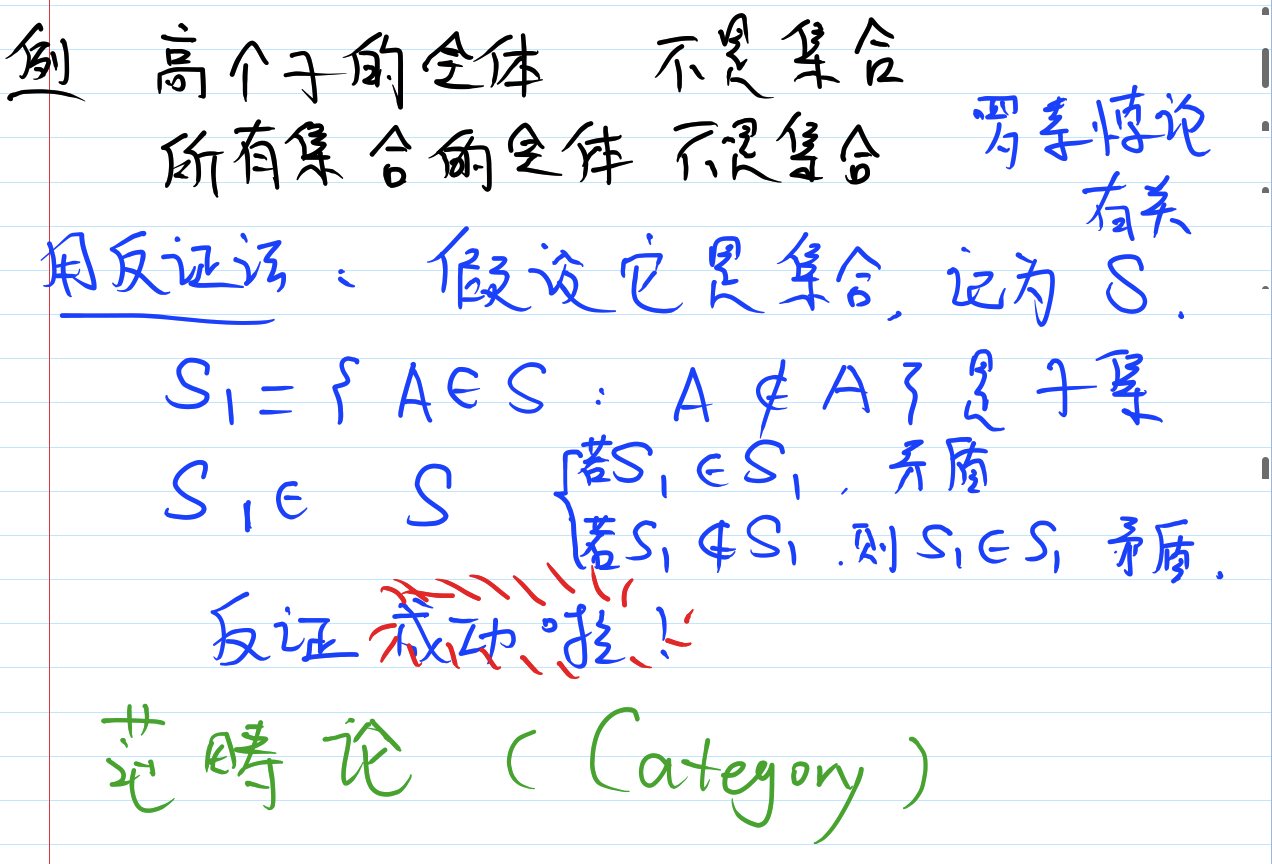 例 高个子的全体 不是集合
所有集合的全体 不是集合
罗素悖论
有关
用反证法: 假设它是集合, 记为 S.
S₁={ A∈S : A∉A } 是子集
S₁∈ S
若S₁∈S₁, 矛盾
若S₁∉S₁.则S₁∈S₁ 矛盾.
反证成功啦!
范畴论 (Category)